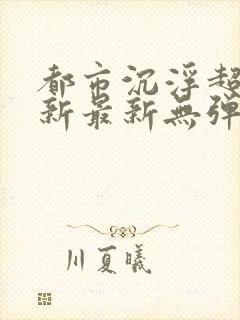 都市沉浮超
新最新無弹
川夏曦